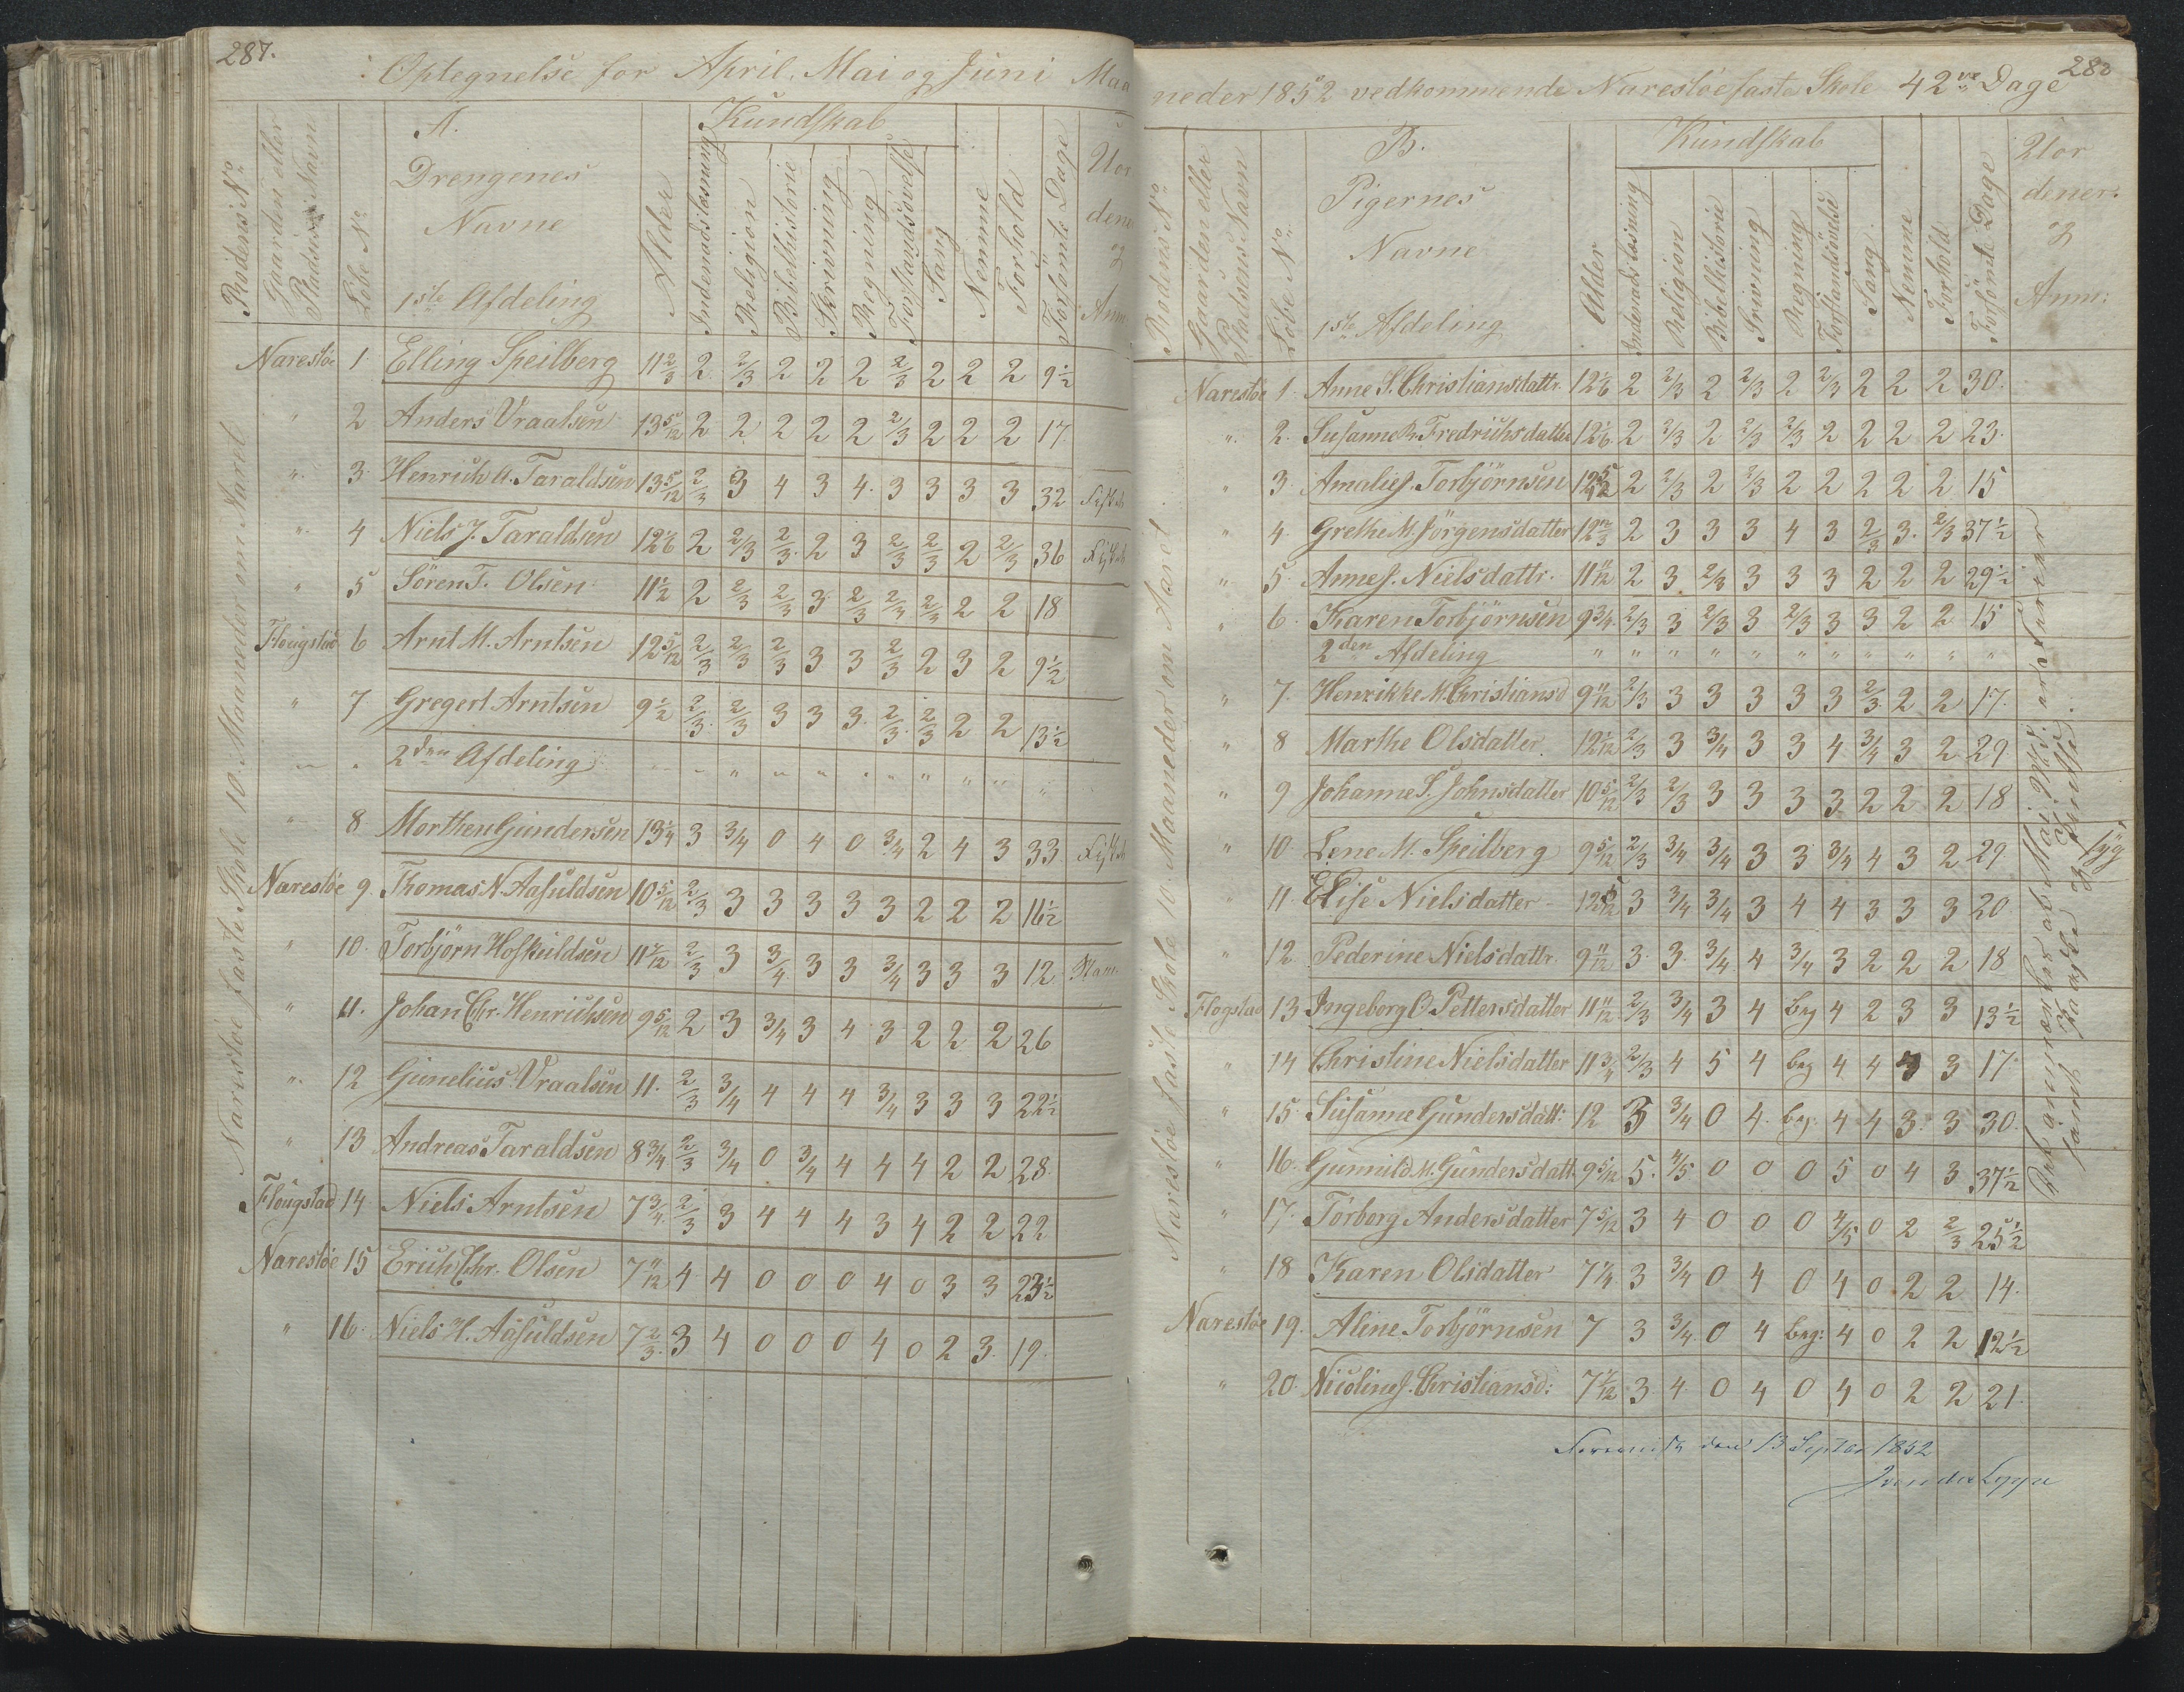 287.
Optegnelse for April, Mai og Juni Maa
Rodens No
Gaarden eller Pladsens Navn
Löbe No
A.
Drengenes
Navne
1ste Afdeling
Alder
Kundskab
Indenadslæsning
Religion
Bibelhistorie
Skrivning
Regning
Forstandsövelse
Sang
Nemme
Forhold
Forsömte Dage
Uor
dene
og
Anm
Narestöe faste Skole 10 Maaneder om Aaret
Narestöe 1. Elling Speilberg 11 2/3 2 2/3 2 2 2 2/3 2 2 2 9 1/2
" 2 Anders Vraalsen 13 5/12 2 2 2 2 2 2/3 2 2 2 17
" 3. Henrich A. Taraldsen 13 5/12 2/3 3 4 3 4. 3 3 3 3 32
" 4 Niels J. Taraldsen 12 1/6 2 2/3 2/3 2 3 2/3 2/3 2 2/3 36
" 5 Sören T. Olsen 11 1/2 2 2/3 2/3 3 2/3 2/3 2/3 2 2 18
Flougstad 6 Arnt M. Arntsen 12 5/12 2/3 2/3 2/3 3 3 2/3 2 3 2 9 1/2
" 7 Gregert Arntsen 9 1/2 2/3 2/3 3 3 3. 2/3 2/3 2 2 13 1/2
2den Afdeling
" 8 Morthen Gundersen 13 1/4 3 3/4 0 4 0 3/4 2 4 3 33
Narestöe 9. Thomas N. Aasuldsen 10 5/12 2/3 3 3 3 3 3 2 2 2 16 1/2
" 10. Torbjörn Hofkuldsen 11 7/12 2/3 3 3/4 3 3 3/4 3 3 3 12
" 11. Johan Chr. Henrichsen 9 5/12 2 3 3/4 3 4 3 2 2 2 26
" 12 Gunelius Vraalsen 11. 2/3 3/4 4 4 4 3/4 3 3 3 22 1/2
" 13 Andreas Taraldsen 8 3/4 2/3 3/4 0 3/4 4 4 4 2 2 28
Flougstad 14 Niels Arntsen 7 3/4 2/3 3 4 4 4 3 4 2 2 22
Narestöe 15 Erich Chr. Olsen 7 11/12 4 4 0 0 0 4 0 3 3 23 1/2
" 16. Niels H. Aasuldsen 7 2/3 3 4 0 0 0 4 0 2 3. 19.
288
neder 1852 vedkommende Narestöe faste Skole 42 Dage
Rodens No
Gaarden eller Pladsens Navn
Löbe No
B.
Pigernes
Navne
1ste Afdeling
Alder
Kundskab
Indenadslæsning
Religion
Bibelhistorie
Srivning
Regning
Forstandsövelse
Sang
Nemme
Forhold
Forsömte Dage
Uor
dener
og
Anm:
Narestöe faste Skole 10 Maaneder om Aaret
Narestöe 1 Anne S. Christiansdattr. 12 1/6 2 2/3 2 2/3 2 2/3 2 2 2 30.
" 2. Susanne R. Fredrichsdatter 12 1/6 2 2/3 2 2/3 2/3 2 2 2 2 23.
" 3. Amalie J. Torbjörnsen 12 5/12 2 2/3 2 2/3 2 2 2 2 2 15
" 4. Grethe M. Jörgensdatter 12 2/3 2 3 3 3 4 3 2/3 3. 2/3 37 1/2
" 5. Anne J. Nielsdattr. 11 11/12 2 3 2/3 3 3 3 2 2 2 29 1/2
" 6. Karen Torbjörnsen 9 3/4 2/3 3 2/3 3 2/3 3 3 2 2 15
2den Afdeling " " " " " " " " " " "
" 7. Henrikke M. Christiansd 9 11/12 2/3 3 3 3 3 3 2/3 2 2 17.
" 8 Marthe Olsdatter. 12 1/12 2/3 3 3/4 3 3 4 3/4 3 2 29
" 9 Johanne S. Johnsdatter 10 5/12 2/3 2/3 3 3 3 3 2 2 2 18
" 10. Lene M. Speilberg 9 5/12 2/3 3/4 3/4 3 3 3/4 4 3 2 29.
" 11. Elise Nielsdatter 12 5/12 3 3/4 3/4 3 4 4 3 3 3 20
" 12 Pederine Nielsdattr. 9 11/12 3. 3. 3/4 4 3/4 3 2 2 2 18
Flogstad 13 Ingeborg O. Pettersdatter 11 11/12 2/3 3/4 3 4 beg 4 2 3 3 13 1/2
" 14 Christine Nielsdatter 11 3/4 2/3 4 5 4 beg 4 4 3 3 17.
" 15. Susanne Gundersdatt: 12 3 3/4 0 4. beg. 4 4 3. 3 30.
" 16. Gunnild M. Gundersdatt. 9 5/12 5. 4/5 0 0 0 5 0 4 3 37 1/2
" 17. Torborg Andersdatter 7 5/12 3 4 0 0 0 4/5 0 2 2/3 25 1/2
" 18 Karen Olsdatter 7 1/4 3 3/4 0 4 0 4 0 2 2 14.
Narestöe 19. Aline Torbjörnsen 7 3 3/4 0 4 beg: 4 0 2 2 12 1/2
" 20. Nicoline J. Christiansd: 7 1/12 3 4 0 4 0 4 0 2 2 21.
den 13 Septbr 1852